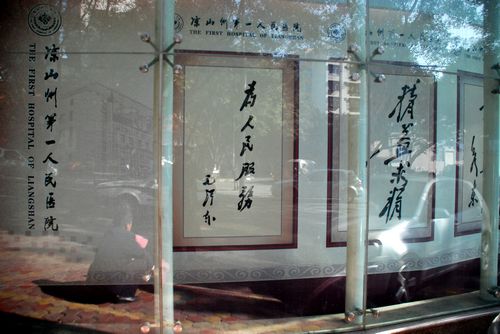 凉山州第一人民医院
THE FIRST HOSPITAL OF LIANGSHAN
凉山州第一人民医院
THE FIRST HOSPITAL OF LIANGSHAN
为人民服务
毛泽东
精益求精